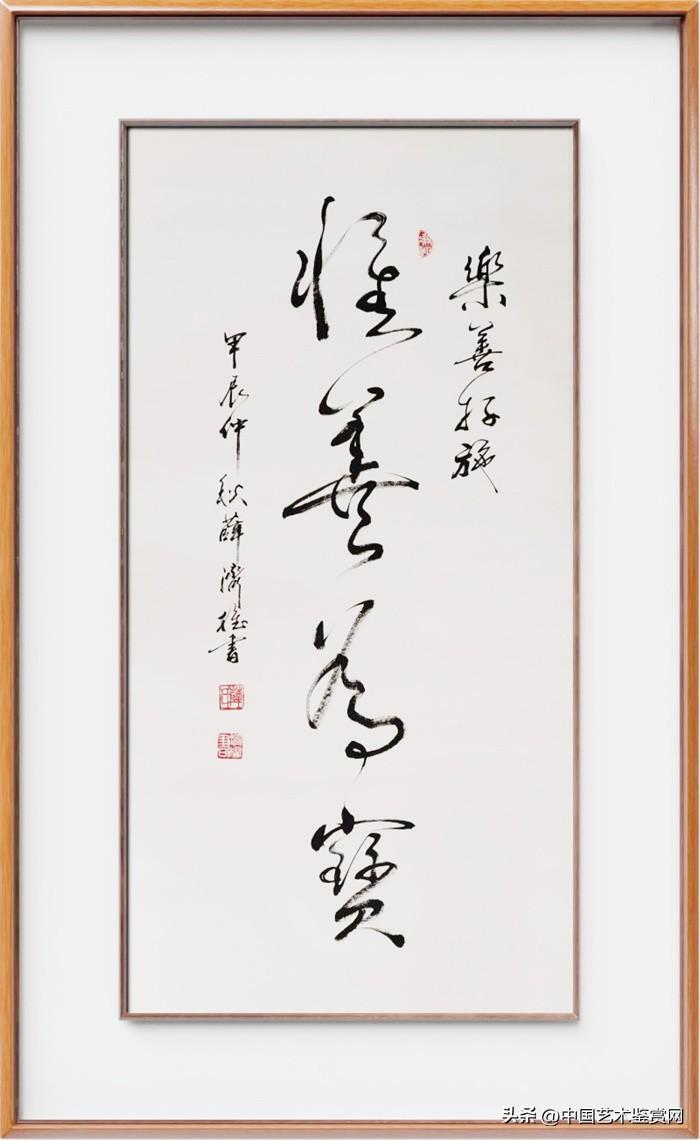 樂善好施
惟善為寶
甲辰仲秋薛濟書
头条 @中国艺术鉴赏网